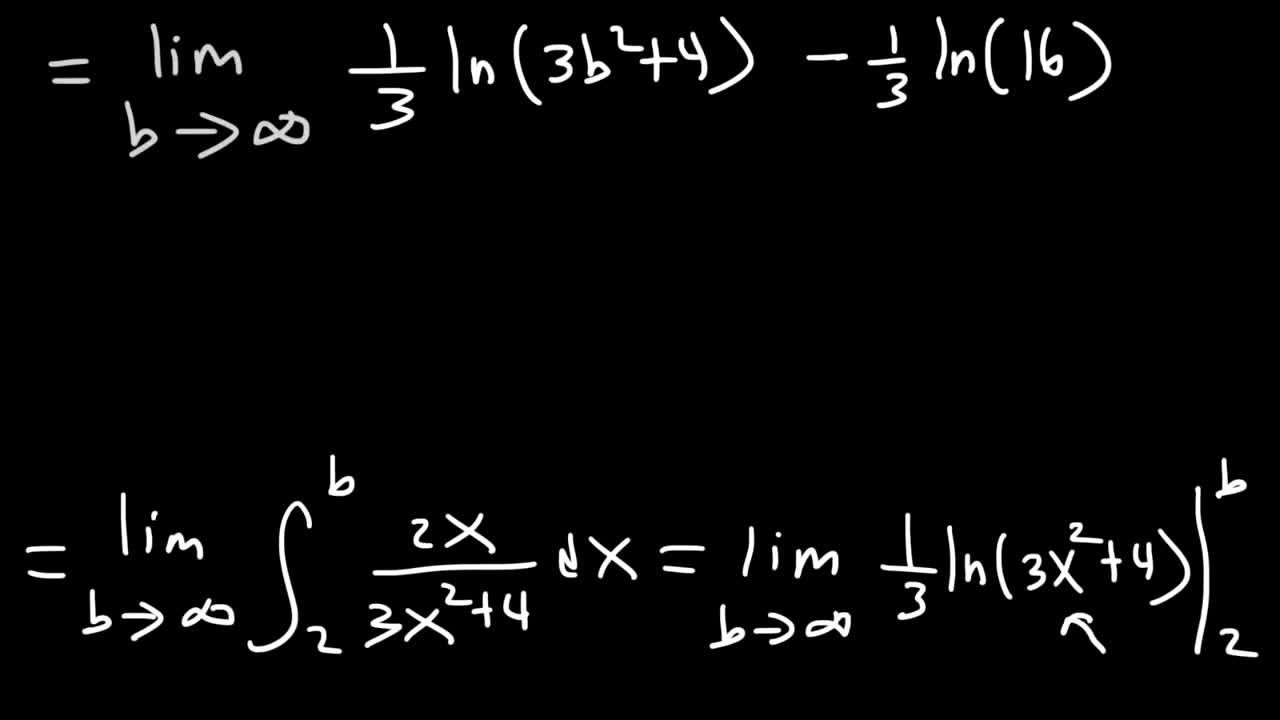 = lim b→∞ 1/3 ln(3b²+4) - 1/3 ln(16)
= lim b→∞ ∫₂ᵇ 2x/(3x²+4) dx = lim b→∞ 1/3 ln(3x²+4) |₂ᵇ